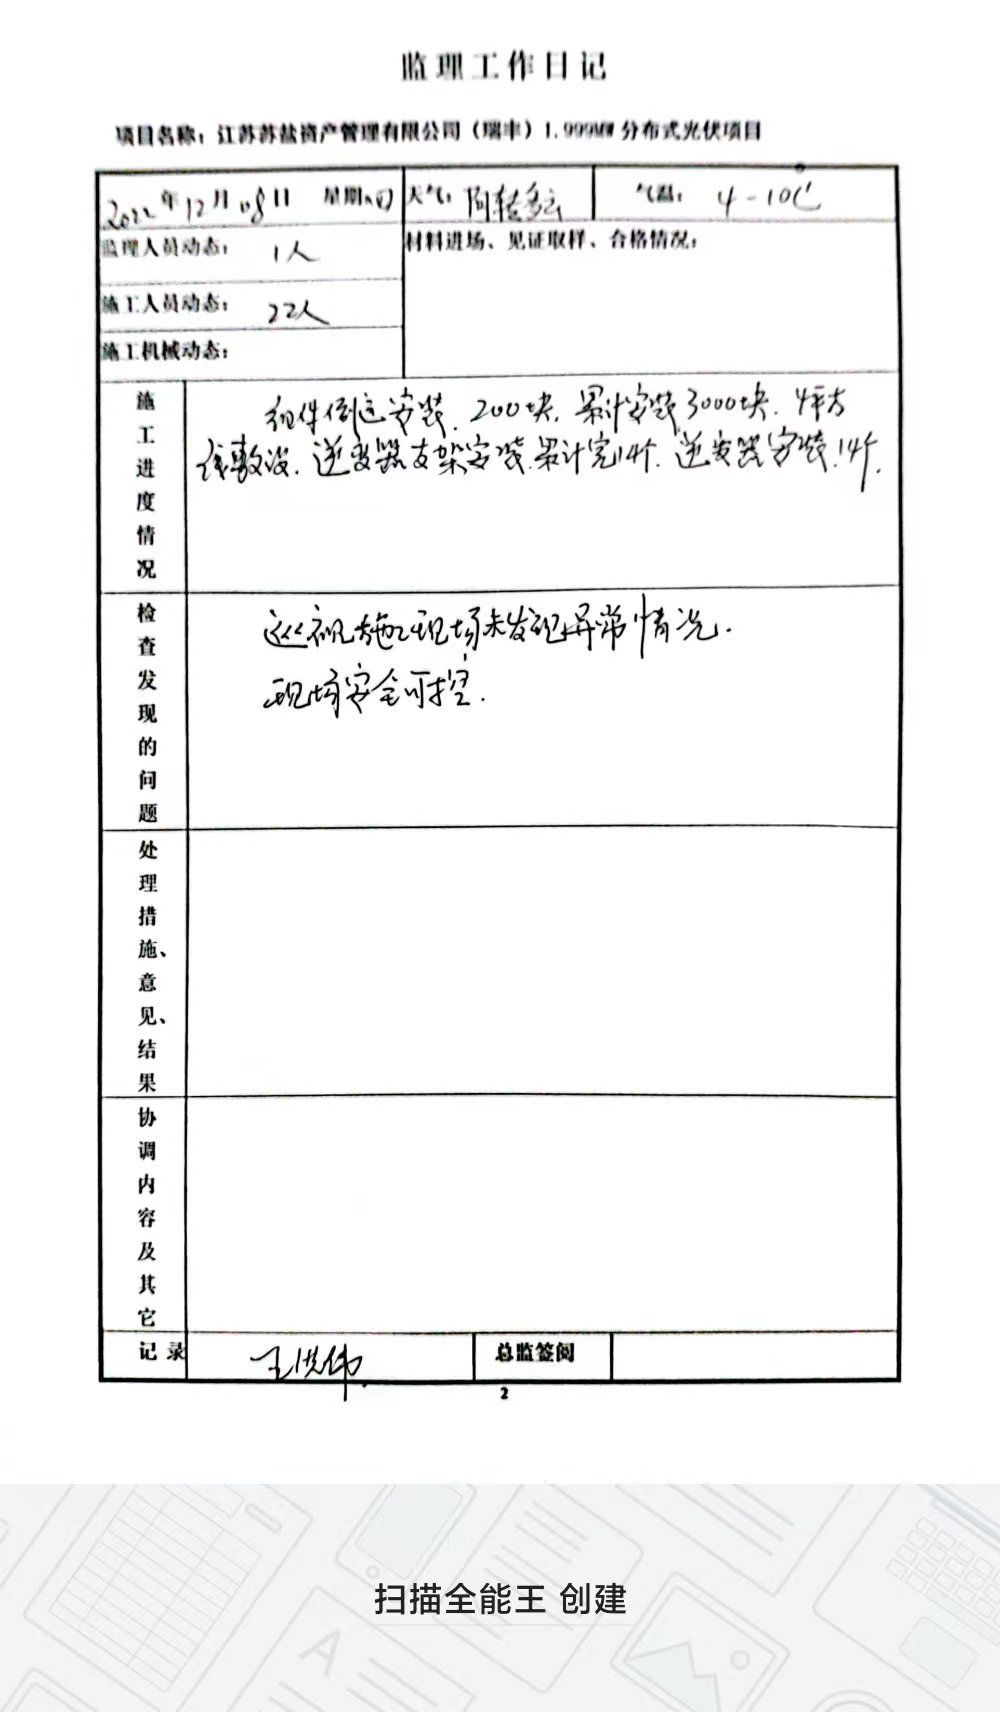 监理工作日记
项目名称：江苏苏盐资产管理有限公司（瑞丰）1.999MW 分布式光伏项目
2022年12月08日 星期四 天气：阴转多云 气温：4-10℃
监理人员动态：1人 材料进场、见证取样、合格情况：
施工人员动态：22人
施工机械动态：
施工进度情况
组件倒运安装.200块.累计安装3000块.4平方
线敷设.逆变器支架安装.累计完14个.逆变器安装.14个.
检查发现的问题
巡视施工现场未发现异常情况.
现场安全可控.
处理措施、意见、结果
协调内容及其它
记录 王洪伟 总监签阅
2
扫描全能王 创建